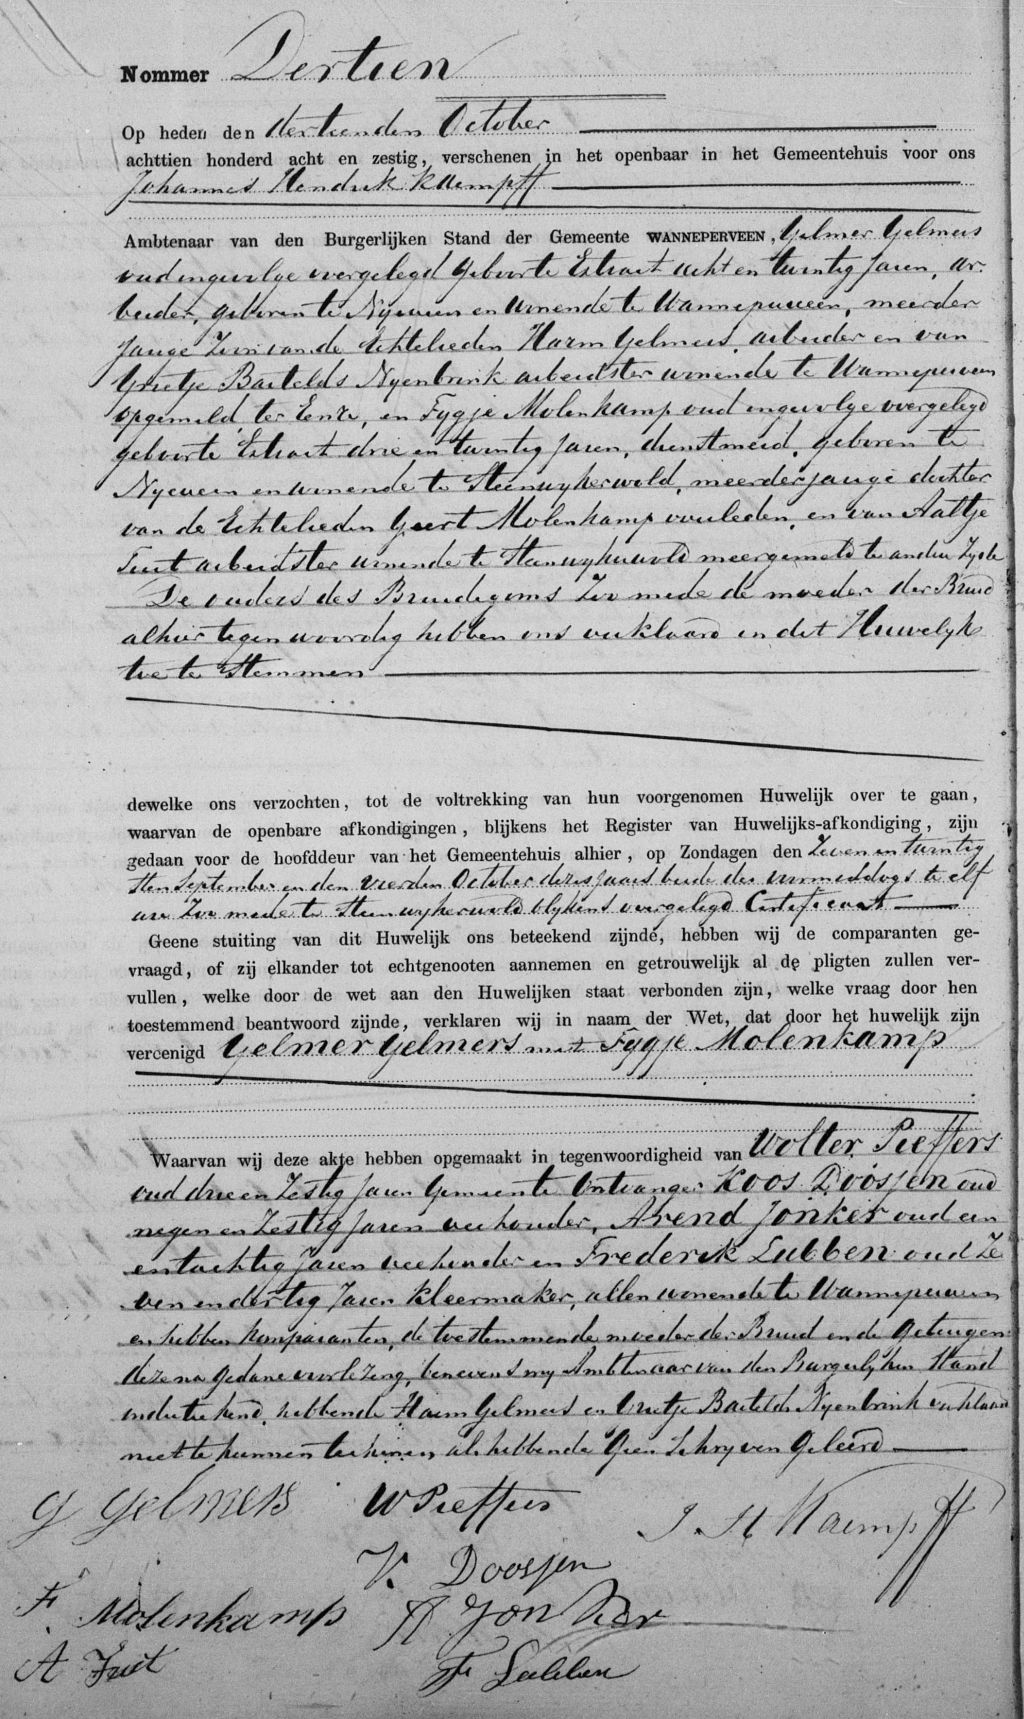 Nommer Dertien
Op heden den dertienden October
achttien honderd acht en zestig, verschenen in het openbaar in het Gemeentehuis voor ons
Johannes Hendrik Kaempff
Ambtenaar van den Burgerlijken Stand der Gemeente WANNEPERVEEN, Gelmer Gelmers
oud ingevolge overgelegd Geboorte Extract acht en twintig Jaren, ar-
beider, geboren te Nyeveen en wonende te Wanneperveen, meerder
jarige Zoon van de Echtelieden Harm Gelmers, arbeider en van
Grietje Bartelds Nyenbrink arbeidster wonende te Wanneperveen
opgemeld, ter Eenre, en Fygje Molenkamp oud ingevolge overgelegd
geboorte Extract drie en twintig Jaren, dienstmeid, geboren te
Nyeveen en wonende te Steenwykerwold, meerderjarige dochter
van de Echtelieden Geert Molenkamp overleden, en van Aaltje
arbeidster wonende te Steenwykerwold meergemeld te andere Zyde
De ouders des Bruidegoms Zoo mede de moeder der Bruid
alhier tegenwoordig hebben ons verklaard in dit Huwelyk
toe te Stemmen
dewelke ons verzochten, tot de voltrekking van hun voorgenomen Huwelijk over te gaan,
waarvan de openbare afkondigingen, blijkens het Register van Huwelijks-afkondiging, zijn
gedaan voor de hoofddeur van het Gemeentehuis alhier, op Zondagen den Zeven en twintig
sten September en den vierden October dezes jaars beide des voormiddags te elf
ure Zoo mede te Steenwykerwold blykens overgelegd Certificaat
Geene stuiting van dit Huwelijk ons beteekend zijnde, hebben wij de comparanten ge-
vraagd, of zij elkander tot echtgenooten aannemen en getrouwelijk al de pligten zullen ver-
vullen, welke door de wet aan den Huwelijken staat verbonden zijn, welke vraag door hen
toestemmend beantwoord zijnde, verklaren wij in naam der Wet, dat door het huwelijk zijn
vereenigd Gelmer Gelmers met Fygje Molenkamp
Waarvan wij deze akte hebben opgemaakt in tegenwoordigheid van Wolter Pieffers
oud drie en Zestig Jaren Gemeente Ontvanger Koos Doosjen oud
negen en Zestig Jaren veehouder, Arend Jonker oud een
en tachtig Jaren veehouder en Frederik Lubben oud Ze
ven en dertig Jaren Kleermaker, allen wonende te Wanneperveen
en hebben komparanten, de toestemmende moeder der Bruid en de Getuigen
deze na gedane voorlezing, benevens my Ambtenaar van den Burgerlyken Stand
onderteekend, hebbende Harm Gelmers en Grietje Bartelds Nyenbrink verklaard
niet te kunnen teekenen, als hebbende Geen Schryven Geleerd
G Gelmers W Pieffers J. H Kaempff
K. Doosjen
F. Molenkamp A Jonker
A F Lubben